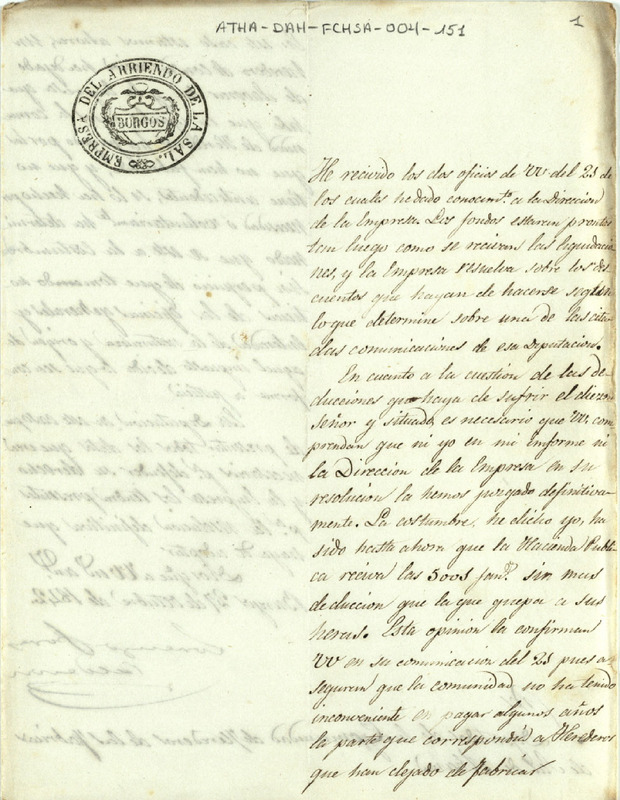 ATHA-DAH-FCHSA-004-151
1
EMPRESA DEL ARRIENDO DE LA SAL.
BURGOS
He recivido los dos oficios de VV del 25 de
los cuales he dado conocimto. a la Direccion
de la Empresa. Los fondos estaran prontos
tan luego como se recivan las liquidacio-
nes, y la Empresa resuelva sobre los des-
cuentos que hayan de hacerse segun
lo que determine sobre una de las cita-
das comunicaciones de esa Diputacion.
En cuanto a la cuestion de las de-
ducciones que haya de sufrir el diezmo
señor y situado, es necesario que VV. com-
prendan que ni yo en mi informe ni
la Direccion de la Empresa en su
resolucion la hemos juzgado definitiva-
mente. La costumbre, he dicho yo, ha
sido hasta ahora que la Hacienda Publi-
ca reciva las fans. sin mas
deduccion que la que quepa a sus
heras. Esta opinion la confirman
VV en su comunicacion del 25 pues a-
seguran que la comunidad no ha tenido
inconveniente en pagar algunos años
la parte que correspondia a Herederos
que han dejado de fabricar